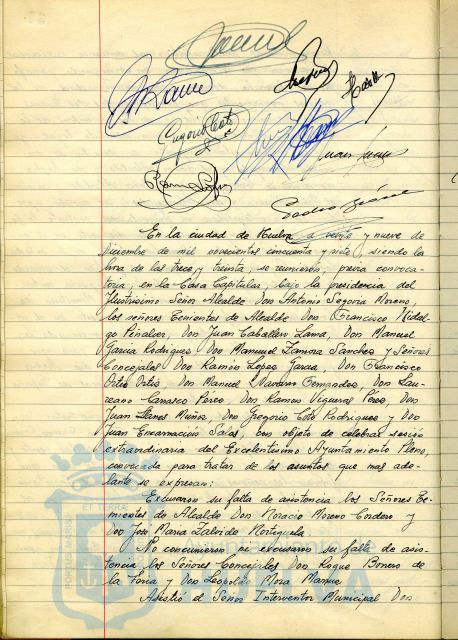 Gregorio Coto
Juan
Ramon Lopez
En la ciudad de Huelva a veinte y nueve de
Diciembre de mil novecientos cincuenta y siete, siendo la
hora de las trece y treinta, se reunieron, previa convoca-
toria, en la Casa Capitular, bajo la presidencia del
Ilustrisimo Señor Alcalde Don Antonio Segovia Moreno,
los señores Tenientes de Alcalde Don Francisco Hidal-
go Peñalver, Don Juan Caballero Lama, Don Manuel
Garcia Rodriguez Don Manuel Zamora Sanchez y Señores
Concejales Don Ramón Lopez Garcia, Don Francisco
Ortiz Ortiz, Don Manuel Navarro Fernandez, Don Lau-
reano Carrasco Perez, Don Ramon Vigueras Perez, Don
Juan Llanes Muñoz, Don Gregorio Coto Rodriguez y Don
Juan Encarnación Salas, con objeto de celebrar sesión
extraordinaria del Excelentisimo Ayuntamiento Pleno,
convocada para tratar de los asuntos que mas ade-
lante se expresan:
Excusaron su falta de asistencia los Señores Te-
nientes de Alcalde Don Horacio Moreno Cordero y
Don José Maria Zalvide Hortiguela
No concurrieron ni excusaron su falta de asis-
tencia los Señores Concejales Don Roque Bonero de
la Toria y Don Leopoldo Mora
Asistió el Señor Interventor Municipal Don